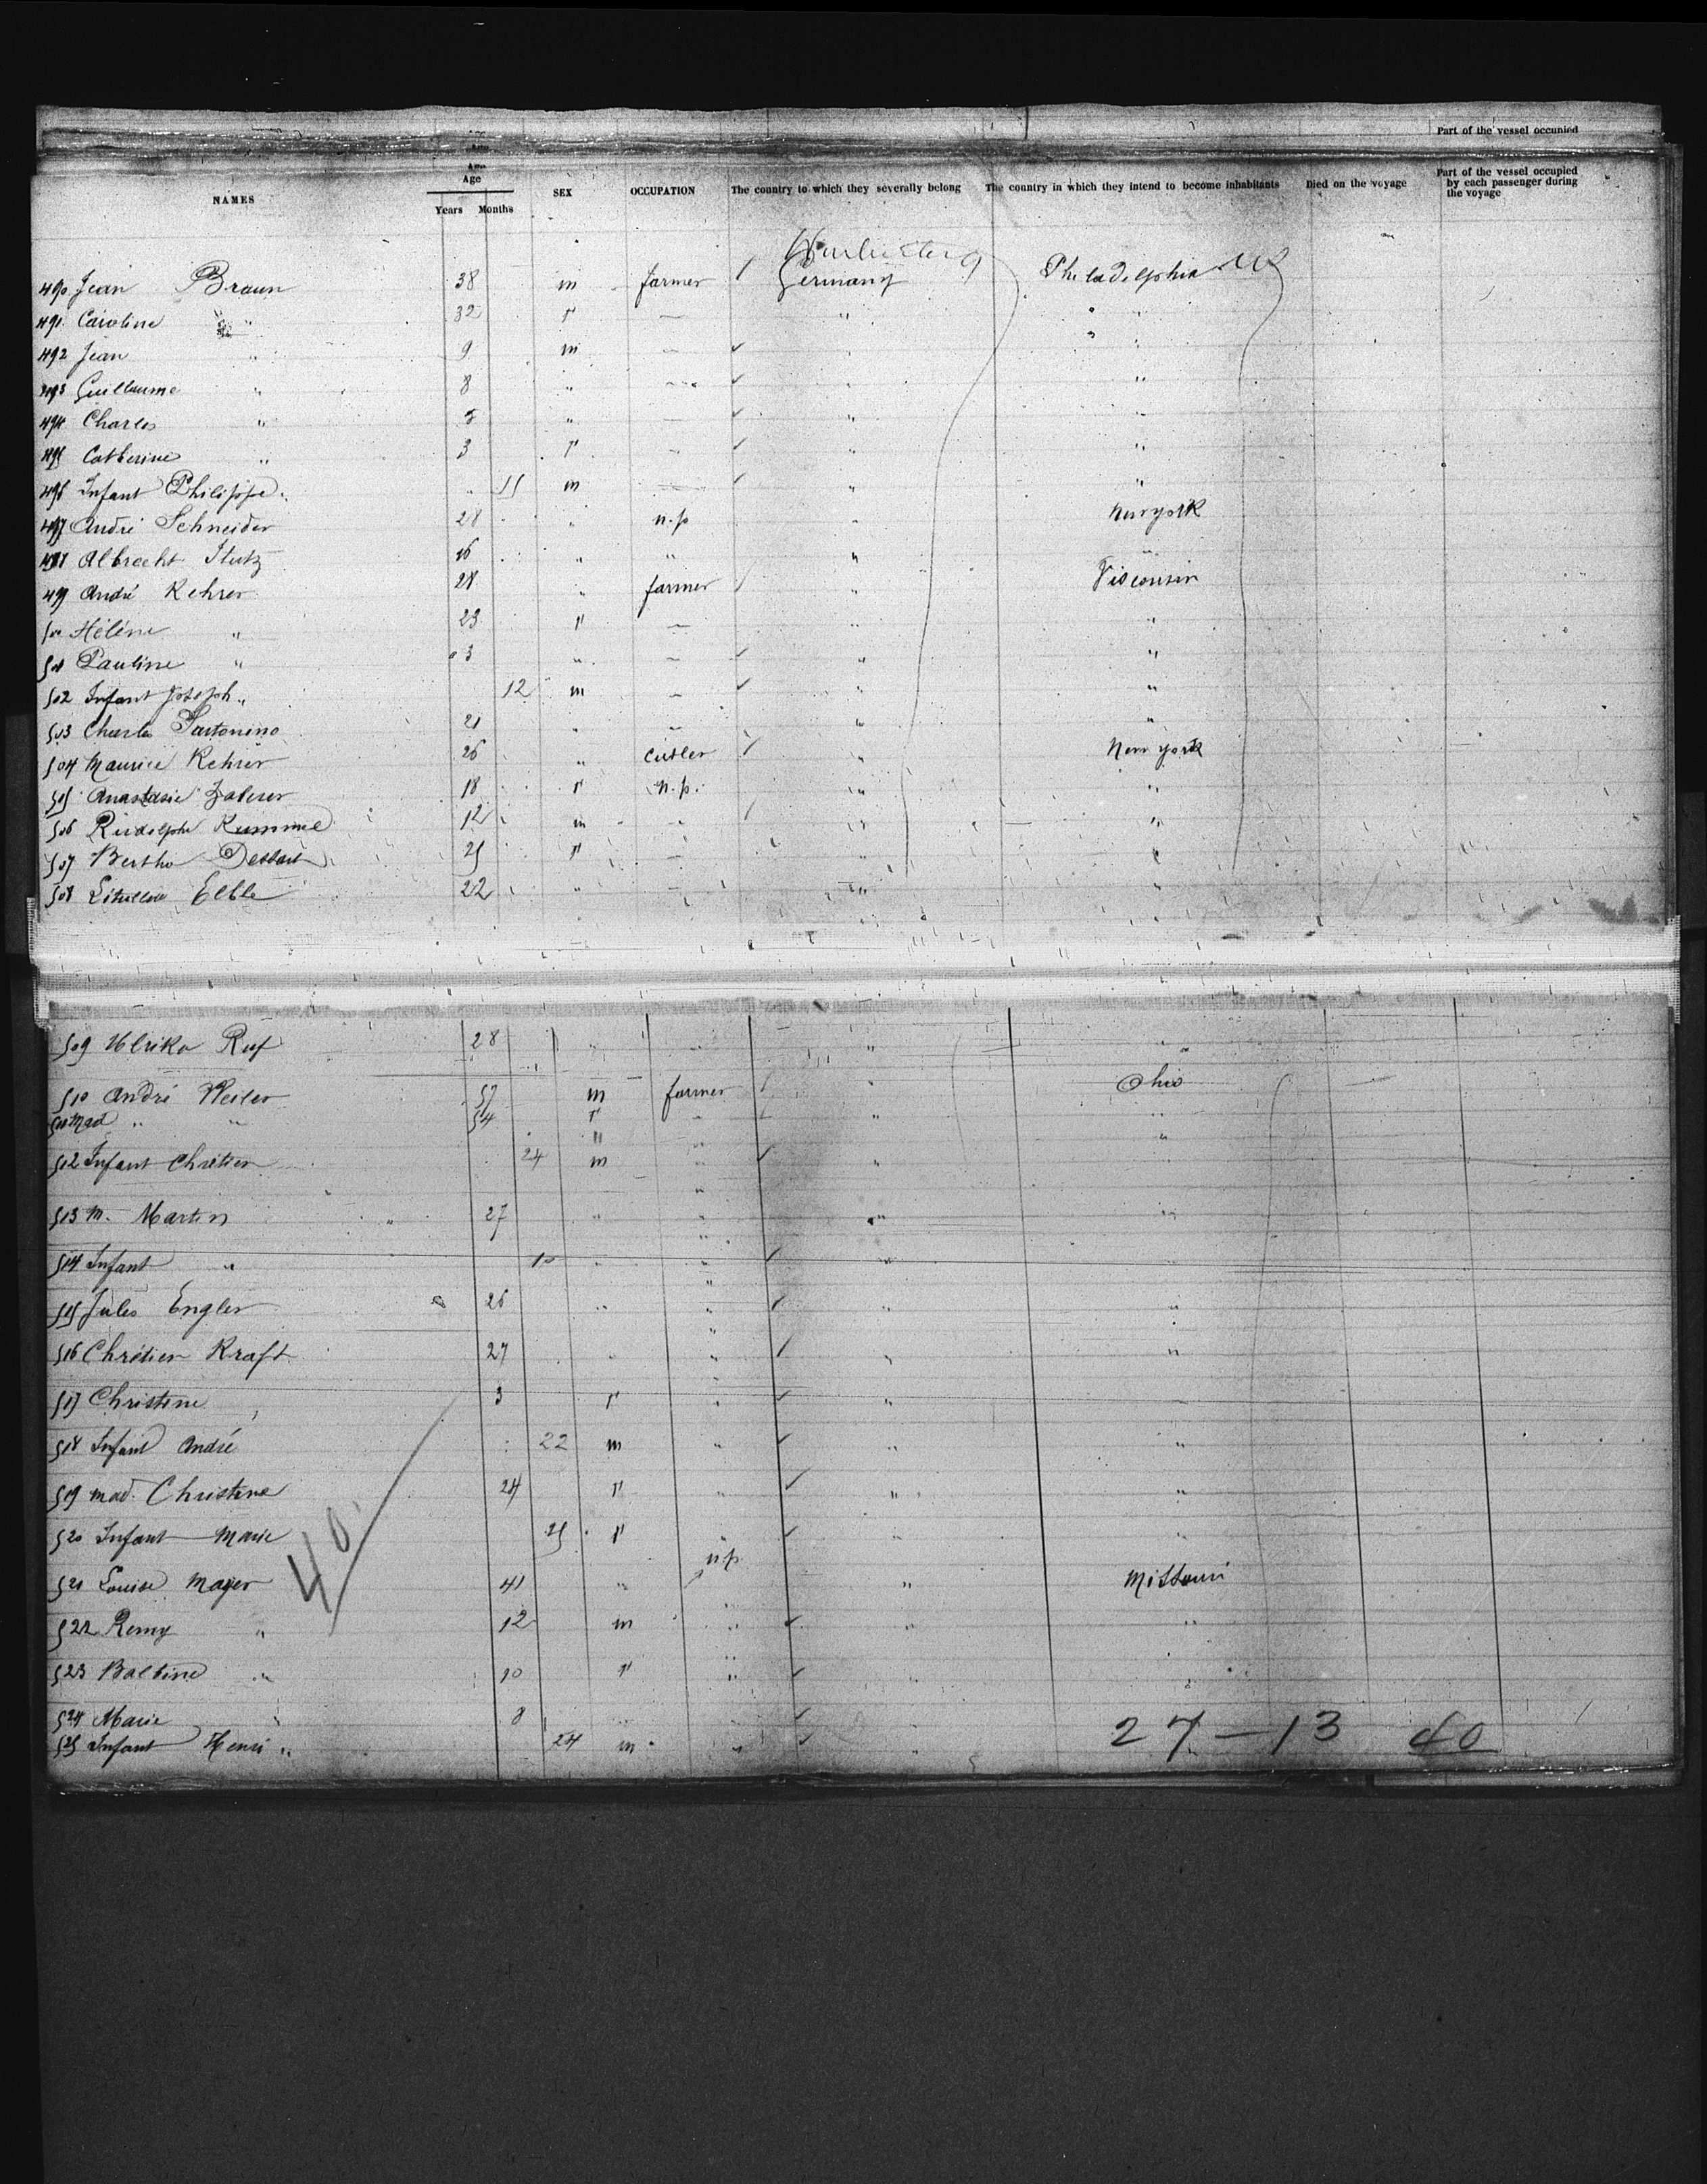 Part of the vessel occupied
Age
NAMES Years Months SEX OCCUPATION The country to which they severally belong The country in which they intend to become inhabitants Died on the voyage Part of the vessel occupied by each passenger during the voyage
490 Jean Braun 38 m farmer Germany Philadelphia US
491 Caroline " 32 f — " "
492 Jean " 9 m — " "
493 Guillaume " 8 " — " "
494 Charles " " — " "
495 Catherine " 3 f — " "
496 Infant Philippe " 11 m — " "
497 André Schneider 28 " n.p " New york
498 Albrecht Stutz 16 " " " "
499 André Rehrer 28 " farmer " Visconsin
500 Hélène " 23 f — " "
501 Pauline " 3 " — " "
502 Infant Joseph " 12 m — " "
503 Charles Sartonino 21 " — " "
504 Maurice Rehrer 26 " cutler " New york
505 Anastasie 18 f n.p. " "
506 Rudolphe Rummel 12 m " " "
507 Bertha 25 f — " "
508 Elble 22 " — " "
509 Ulrike Ruf 28 " " " "
510 André Weiler 57 m farmer " Ohio
511 Mad " " 54 f " " "
512 Infant Chrétien 24 m " " "
513 M. Martin " 27 " " " "
514 Infant " 10 " " "
515 Jules Engler 26 " " " "
516 Chrétien Kraft 27 " " " "
517 Christine 3 f " "
518 Infant André 22 m " " "
519 mad. Christine 24 f " " "
520 Infant Marie 25 f " " "
521 Louise Mayer 41 " n.p " Missouri
522 Remy " 12 m " " "
523 Balbine " 10 f " "
524 Marie " 8
525 Infant Henri " 24 m " "
40
27 — 13 40